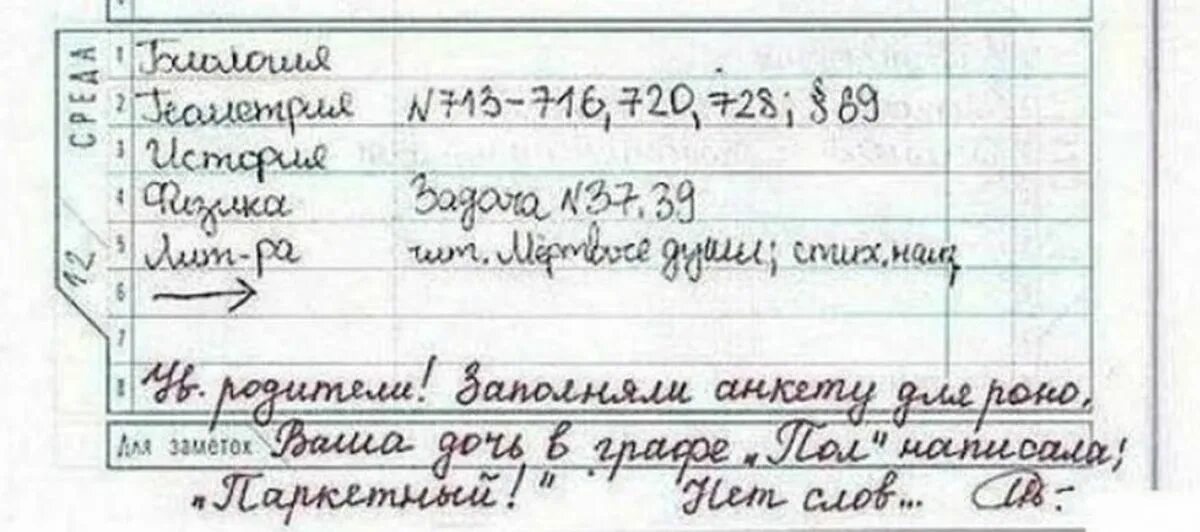 СРЕДА
12
1 Биология
2 Геометрия N713-716, 720, 728; § 69
3 История
4 Физика Задача N37.39
5 Лит-ра чит. Мёртвые души; стих. наиз
6
7
8 Ув. родители! Заполняли анкету для роно.
Для заметок Ваша дочь в графе „Пол" написала;
„Паркетный!" Нет слов...